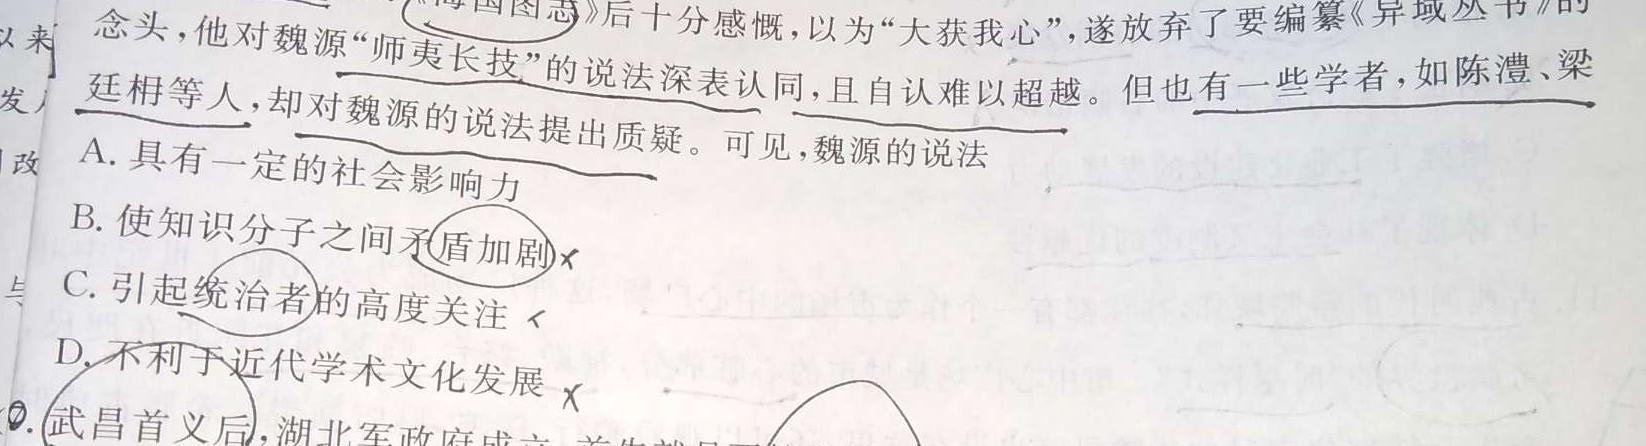 《海国图志》后十分感慨,以为“大获我心”,遂放弃了要编纂《异域丛书》的
以来 念头,他对魏源“师夷长技”的说法深表认同,且自认难以超越。但也有一些学者,如陈澧、梁
发 廷枏等人,却对魏源的说法提出质疑。可见,魏源的说法
改 A. 具有一定的社会影响力
B. 使知识分子之间矛盾加剧
与 C. 引起统治者的高度关注
D. 不利于近代学术文化发展
武昌首义后,湖北军政府成立